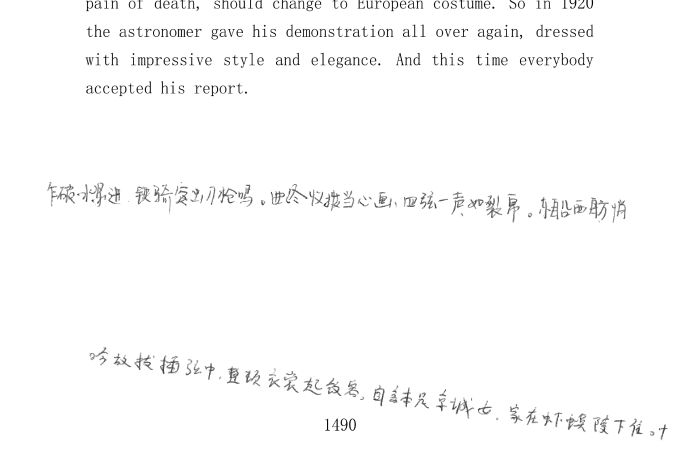 pain of death, should change to European costume. So in 1920
the astronomer gave his demonstration all over again, dressed
with impressive style and elegance. And this time everybody
accepted his report.
乍破水浆迸,铁骑突出刀枪鸣。曲终收拨当心画,四弦一声如裂帛。东船西舫悄
吟放拔插弦中,整顿衣裳起敛容。自言本是京城女,家在虾蟆陵下住。十
1490